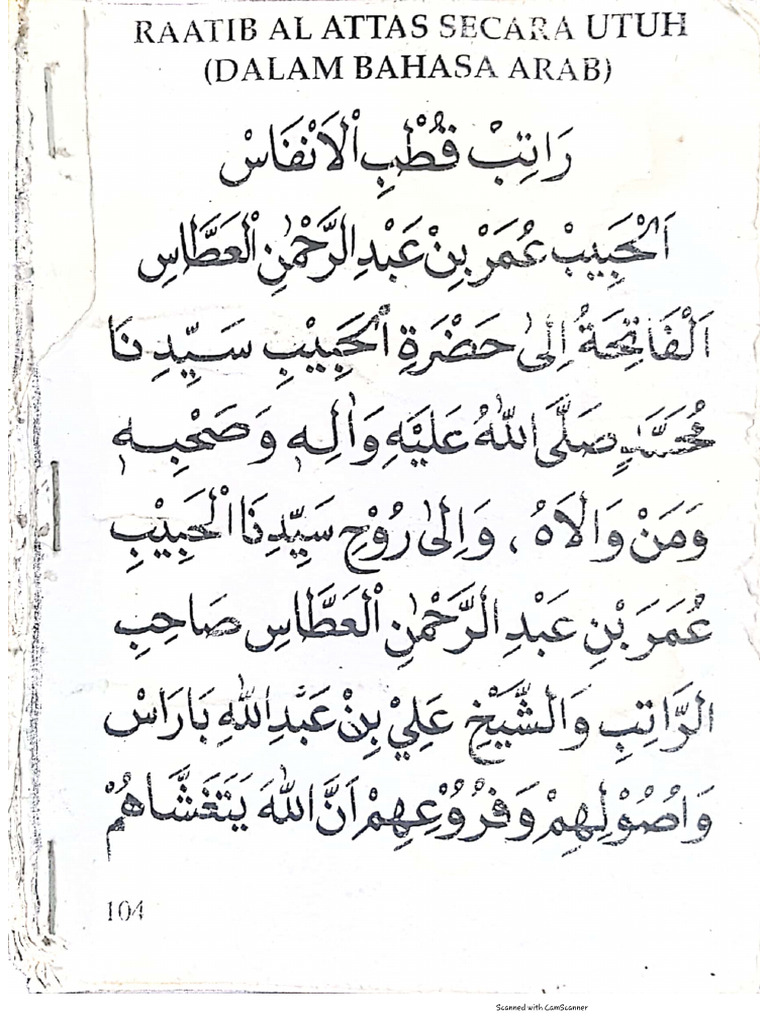 RAATIB AL ATTAS SECARA UTUH
(DALAM BAHASA ARAB)
رَاتِبْ قُطْبِ اْلاَنْفَاسْ
اَلْحَبِيبْ عُمَرْ بِنْ عَبْدِ الرَّحْمٰنِ اْلعَطَّاسِ
اَلْفَاتِحَةُ اِلىٰ حَضْرَةِ الْحَبِيْبِ سَيِّدِنَا
مُحَمَّدٍ صَلَّى اللهُ عَلَيْهِ وَاٰلِهِ وَصَحْبِهِ
وَمَنْ وَالَاهُ ، وَاِلىٰ رُوْحِ سَيِّدِنَا الْحَبِيْبِ
عُمَرَ بْنِ عَبْدِ الرَّحْمٰنِ اْلعَطَّاسِ صَاحِبِ
الرَّاتِبِ وَالشَّيْخِ عَلِيْ بِنْ عَبْدِ اللهِ بَارَاسْ
وَاُصُوْلِهِمْ وَفُرُوْعِهِمْ اَنَّ اللهَ يَتَغَشَّاهُمْ
104
Scanned with CamScanner